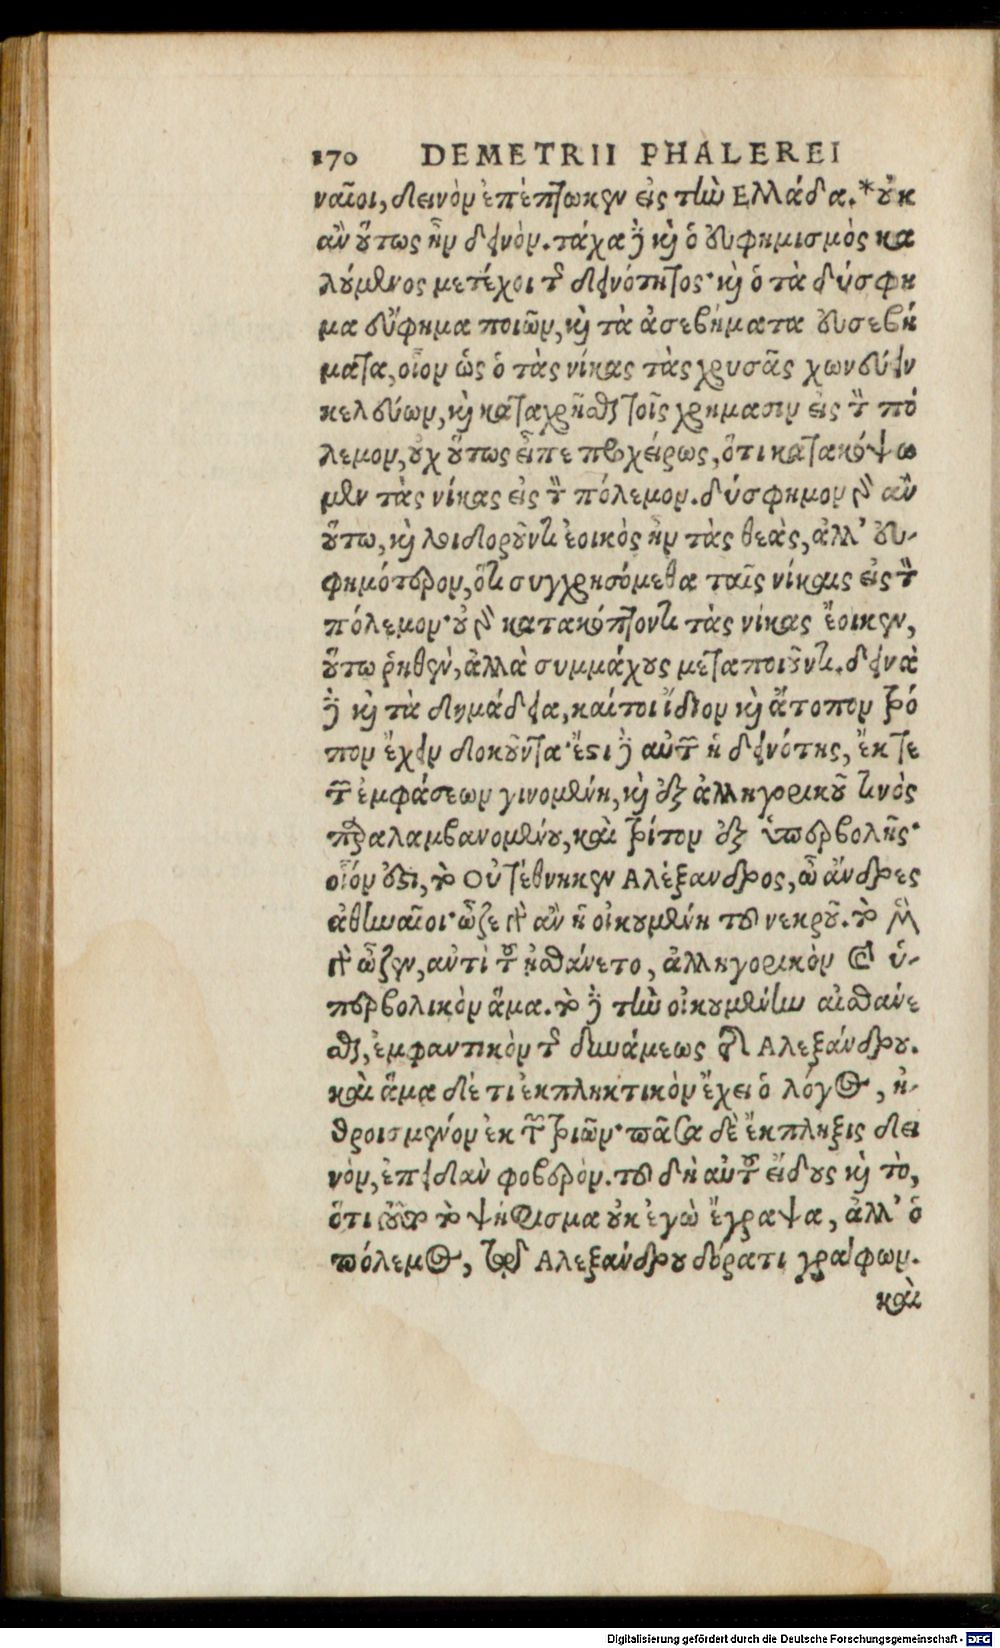 170 DEMETRII PHALEREI
ναῖοι, δεινὸν ἐπέπτωκεν εἰς τὴν Ἑλλάδα.*οὐκ
ἂν οὕτως ἦν δεινόν. τάχα δὲ καὶ ὁ εὐφημισμὸς κα
λούμενος μετέχοι τῆς δεινότητος· καὶ ὁ τὰ δύσφη
μα εὔφημα ποιῶν, καὶ τὰ ἀσεβήματα εὐσεβή
ματα, οἷον ὡς ὁ τὰς νίκας τὰς χρυσᾶς χωνεύειν
κελεύων, καὶ καταχρῆσθαι τοῖς χρήμασιν εἰς τὸν πό
λεμον, οὐχ οὕτως εἶπε προχείρως, ὅτι κατακόψω
μεν τὰς νίκας εἰς τὸν πόλεμον. δύσφημον γὰρ ἂν
οὕτω, καὶ λοιδοροῦντι ἐοικὸς ἦν τὰς θεὰς, ἀλλ' εὐ-
φημότερον, ὅτι συγχρησόμεθα ταῖς νίκαις εἰς τὸν
πόλεμον· οὐ γὰρ κατακόπτοντι τὰς νίκας ἔοικεν,
οὕτω ῥηθὲν, ἀλλὰ συμμάχους μεταποιοῦντι. δεινὰ
δὲ καὶ τὰ δημάδεια, καίτοι ἴδιον καὶ ἄτοπον τρό
πον ἔχειν δοκοῦντα· ἔστι δὲ αὐτῶν ἡ δεινότης, ἔκ τε
τῶν ἐμφάσεων γινομένη, καὶ ἐξ ἀλληγορικοῦ τινὸς
παραλαμβανομένου, καὶ τρίτον ἐξ ὑπερβολῆς·
οἷόν ἐστι, τὸ Οὐ τέθνηκεν Ἀλέξανδρος, ὦ ἄνδρες
ἀθηναῖοι· ὦζε γὰρ ἂν ἡ οἰκουμένη τοῦ νεκροῦ. τὸ μὲν
γὰρ ὦζεν, ἀντὶ τοῦ ᾐσθάνετο, ἀλληγορικὸν καὶ ὑ-
περβολικὸν ἅμα. τὸ δὲ τὴν οἰκουμένην αἰσθάνε
σθαι, ἐμφαντικὸν τῆς δυνάμεως τῆς Ἀλεξάνδρου.
καὶ ἅμα δέ τι ἐκπληκτικὸν ἔχει ὁ λόγος, ἠ-
θροισμένον ἐκ τῶν τριῶν· πᾶσα δὲ ἔκπληξις δει
νὸν, ἐπειδὰν φοβερὸν. τοῦ δὴ αὐτοῦ εἴδους καὶ τὸ,
ὅτι τοῦτο τὸ ψήφισμα οὐκ ἐγὼ ἔγραψα, ἀλλ' ὁ
πόλεμος, τῷ Ἀλεξάνδρου δόρατι γράφων.
καὶ
Digitalisierung gefördert durch die Deutsche Forschungsgemeinschaft - DFG